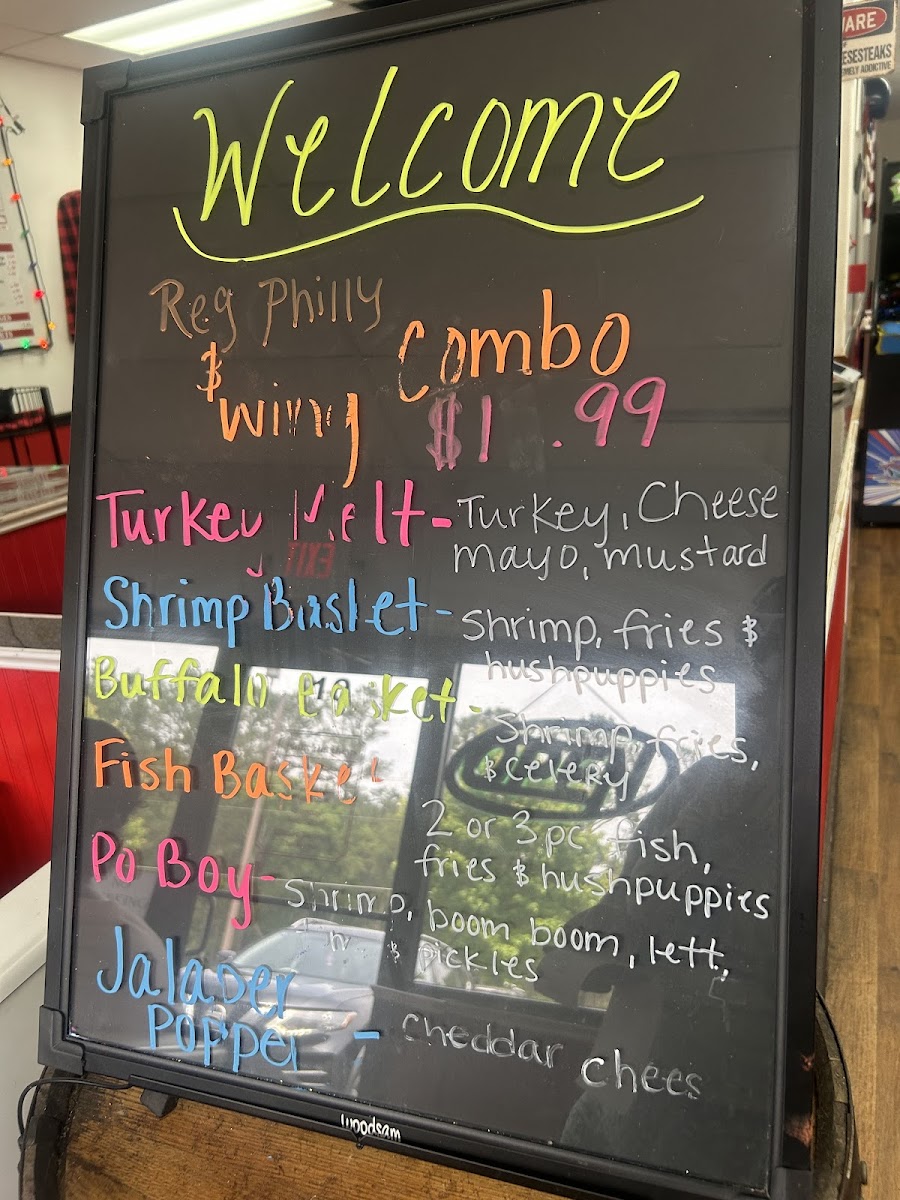 Welcome
Reg Philly
$ Wing Combo
$1 .99
Turkey Melt - Turkey, Cheese
mayo, mustard
Shrimp Basket - Shrimp, fries $
hushpuppies
Buffalo Basket - Shrimp, fries,
$ celery
Fish Basket
2 or 3 pc fish,
fries $ hushpuppies
Po Boy - Shrimp, boom boom, lett,
$ pickles
Jalaper
Popper - cheddar chees
woodsam
EXIT